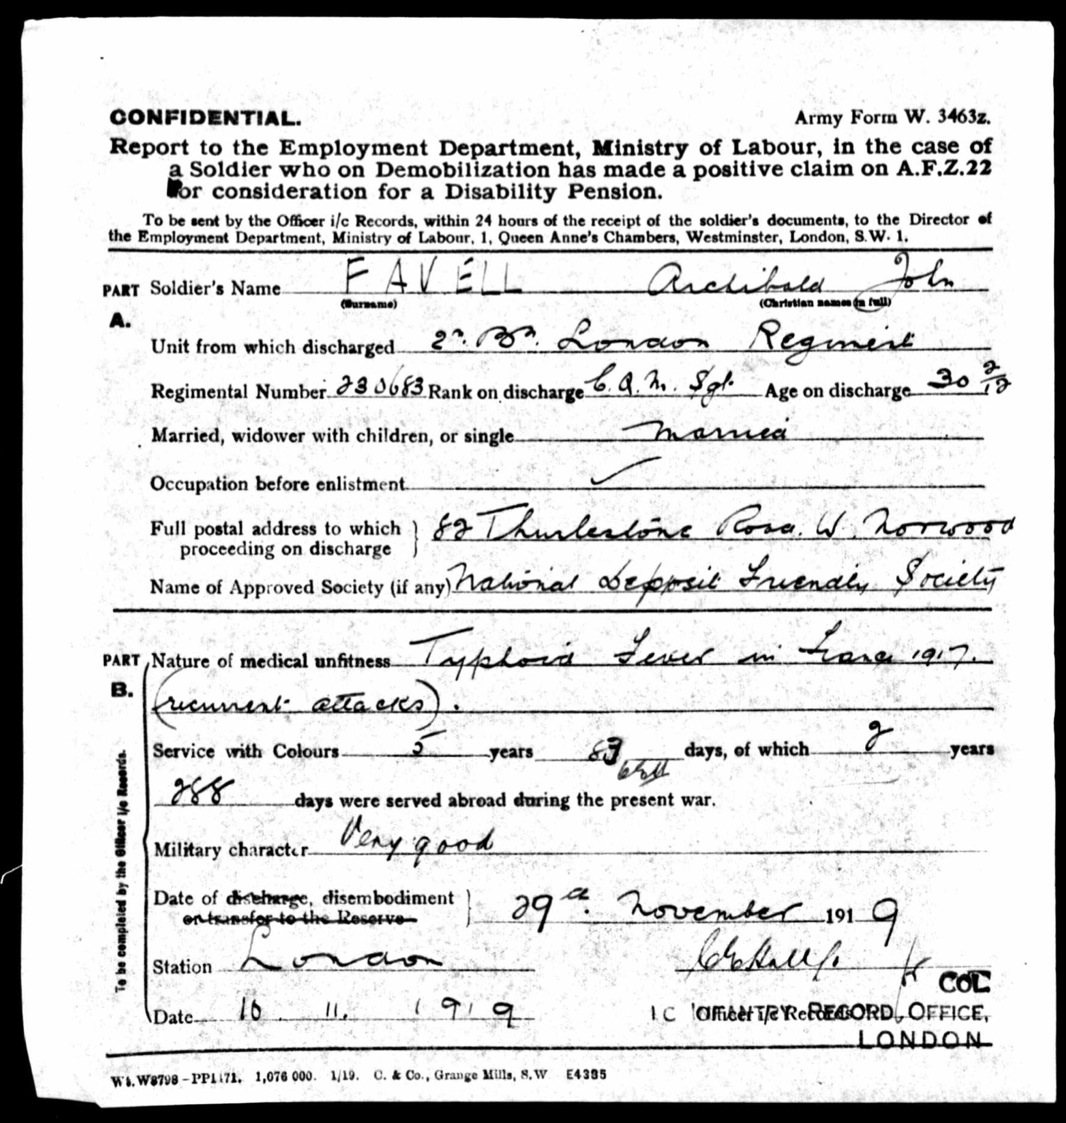 CONFIDENTIAL. Army Form W. 3463z.
Report to the Employment Department, Ministry of Labour, in the case of
a Soldier who on Demobilization has made a positive claim on A.F.Z.22
for consideration for a Disability Pension.
To be sent by the Officer i/c Records, within 24 hours of the receipt of the soldier's documents, to the Director of
the Employment Department, Ministry of Labour, 1, Queen Anne's Chambers, Westminster, London, S.W. 1.
PART A. Soldier's Name FAVELL Archibald John
(Surname) (Christian names in full)
Unit from which discharged 2n. Bn. London Regiment
Regimental Number 230683 Rank on discharge C.Q.M. Sgt. Age on discharge 30 2/12
Married, widower with children, or single Married
Occupation before enlistment ✓
Full postal address to which
proceeding on discharge } 82 Thurlestone Road. W. Norwood
Name of Approved Society (if any) National Deposit Friendly Society
PART B. Nature of medical unfitness Typhoid Fever in France 1917.
(recurrent attacks).
Service with Colours 5 years 83 days, of which 2 years
288 days were served abroad during the present war.
Military character Very good
Date of discharge, disembodiment
or transfer to the Reserve } 29th November 1919
Station London
Date 10. 11. 1919
COL
I C INFANTRY RECORD OFFICE,
LONDON
To be completed by the Officer i/c Records.
Wt. W8798-PP1171. 1,076 000. 1/19. C. & Co., Grange Mills, S.W E4385